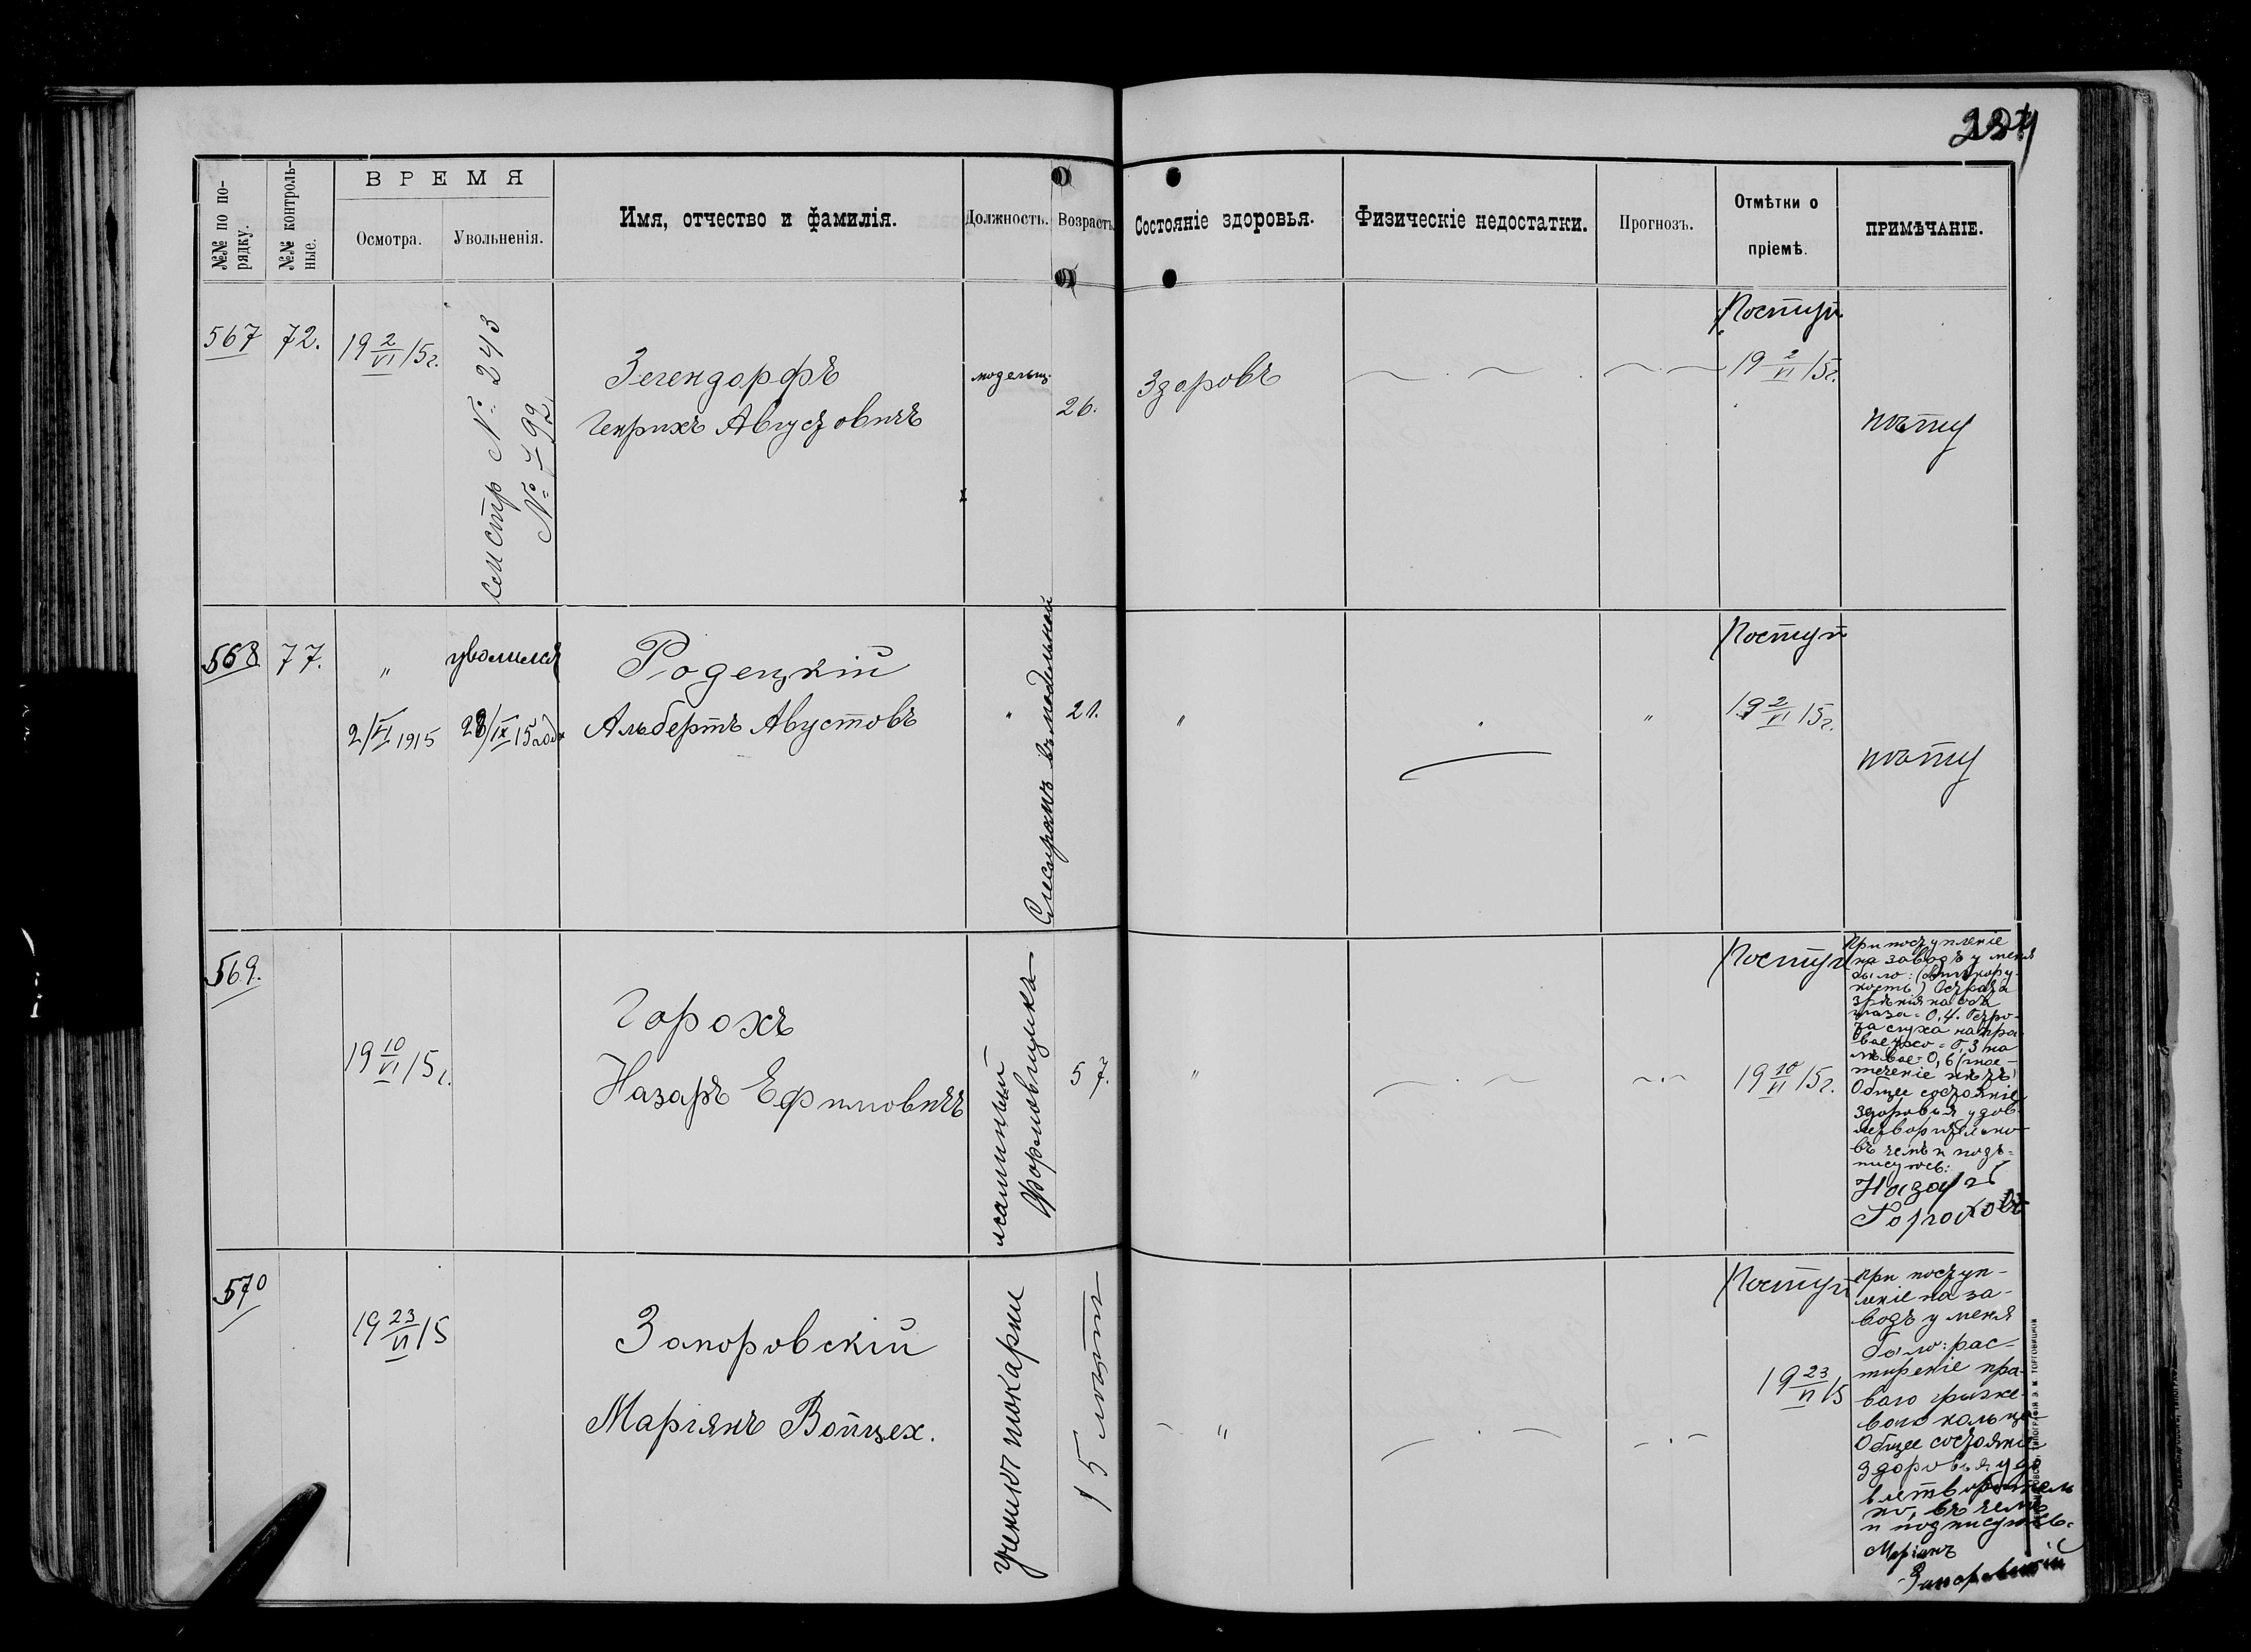 ВРЕМЯ
№№ по по-
рядку.
№№ контроль-
ные.
Осмотра.
Увольненія.
Имя, отчество и фамилія.
Должность.
Возрастъ.
Состояніе здоровья.
Физическіе недостатки.
Прогнозъ.
Отмѣтки о
пріемѣ.
ПРИМѢЧАНІЕ.
567
72.
19 2/VI 15г.
смотр № 243
Зегендорфъ
Генрихъ Августовичъ
модельщ.
26.
Здоровъ
Поступ.
19 2/VI 15г.
568
77.
"
2/VI 1915
уволился
28/IX 15 года
Родецкій
Альбертъ Августовъ
"
Слесаремъ въ модельной
21.
"
"
"
Поступ
19 2/VI 15г.
569.
19 10/VI 15г.
Горохъ
Назаръ Ефимовичъ
машинный
формовщикъ
57.
"
Поступ
19 10/VI 15г.
При поступленіе
на заводъ у меня
было: (
) Острота
зрѣнія на оба
глаза = 0,4. Остро-
та слуха на пра-
вое ухо = 0,3 на
лѣвое = 0,6 (
теченіе нѣтъ)
Общее состояніе
здоровья удов-
летворительно
въ чемъ и подъ-
писуюсь:
Назаръ
Гороховъ
570
19 23/VI 15
Запоровскій
Маріянъ Войцех.
ученикъ токарни
15 лѣтъ
"
Поступ
19 23/VI 15
При поступ-
леніе на за-
водъ у меня
было: рас-
ширеніе пра-
ваго грыже-
ваго кольца
Общее состояніе
здоровья удо
влетворитель
но, въ чемъ
и подписуюсь.
Маріанъ
Запоровскій
ТИПОГРАФІЯ Э. М. ТОРГОВИЦКОЙ